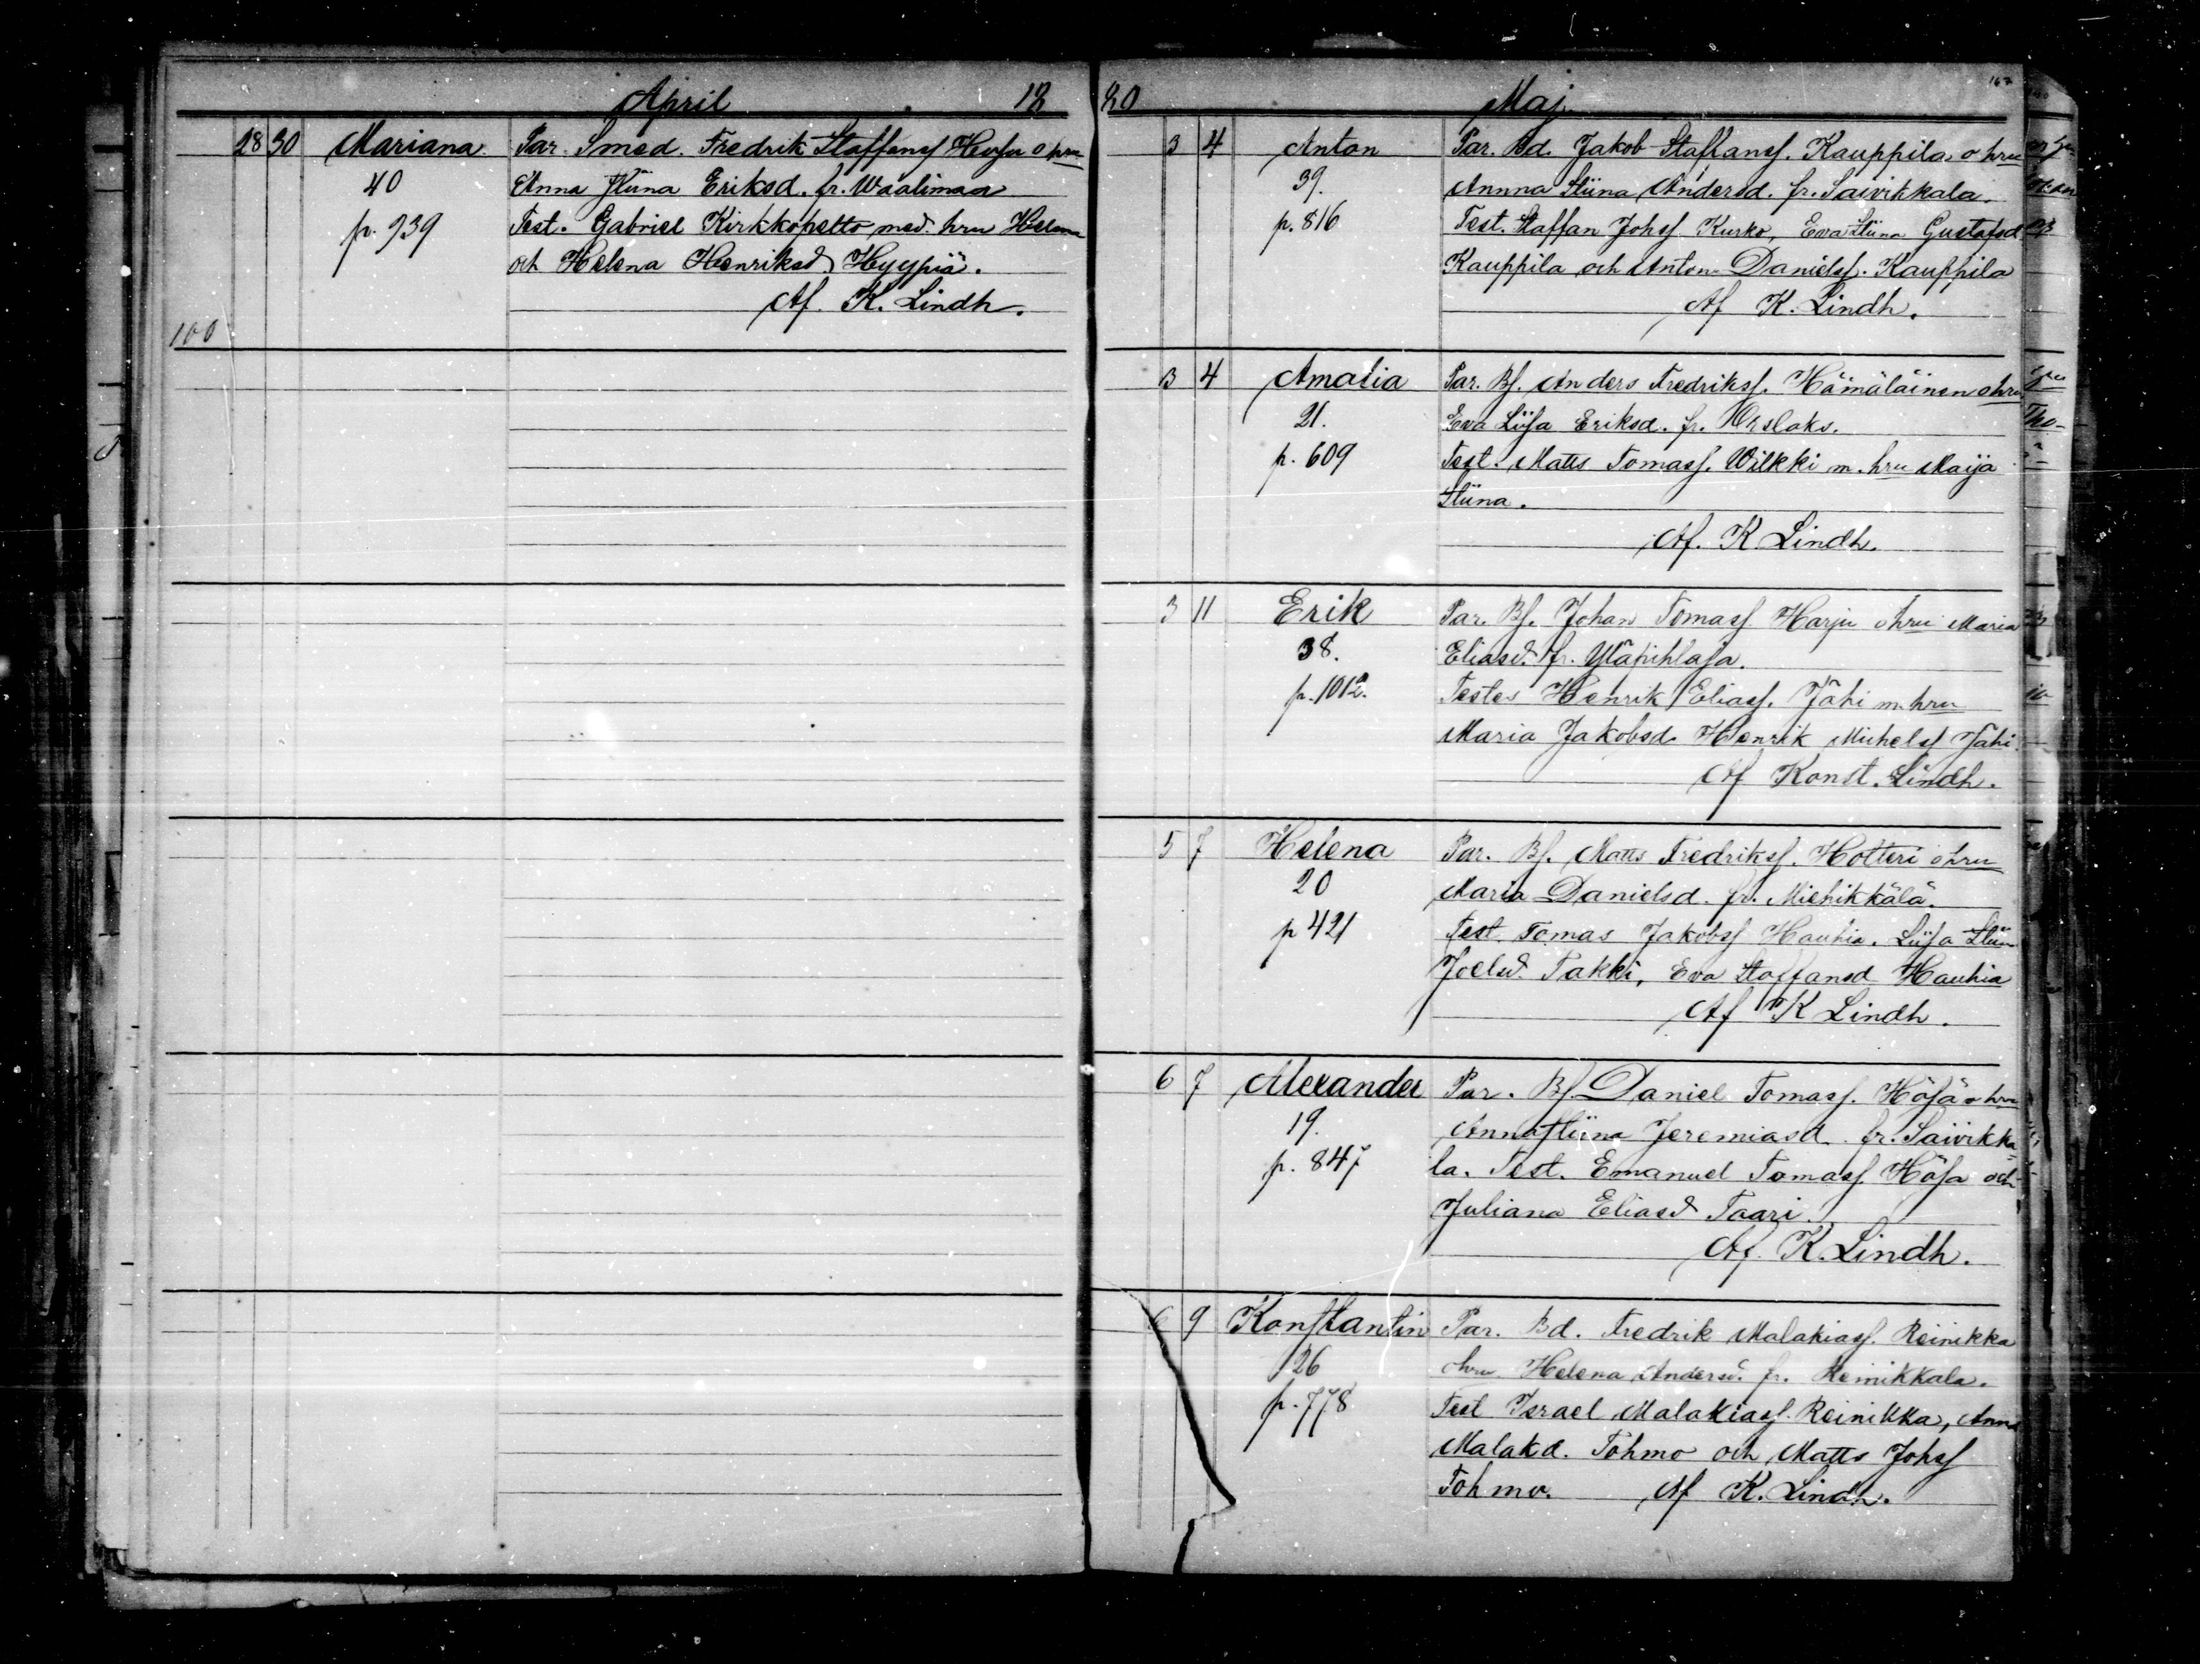 April 12
28 30 Mariana Par. Smed. Fredrik Staffansf o hru
40 Anna Stiina Eriksd. fr. Waalimaa
p. 939 Test. Gabriel Kirkkopelto med hru Helena
och Helena Henriksd. Hyypiä.
Af. K. Lindh.
100
20 Maj. 162
3 4 Anton Par. Bd. Jakob Staffansf. Kauppila o hru
39. Annna Stiina Andersd. fr. Saivikkala.
p. 816 Test. Staffan Johsf Kurko, Eva Stiina Gustafsd
Kauppila och Anton Danielsf. Kauppila
Af K. Lindh.
3 4 Amalia Par. Bf. Anders Fredriksf. Hämäläinen o hru
21. Eva Liisa Eriksd. fr. Orslaks.
p. 609 Test. Matts Tomasf. Wilkki m. hru Maija
Stiina.
Af. K Lindh.
3 11 Erik Par. Bf. Johan Tomasf Harju o hru Maria
38. Eliasd. fr. Yläpihlaja.
p. 1012. Testes Henrik Eliasf. Jähi m. hru
Maria Jakobsd. Henrik Michelsf Jähi.
Af Konst. Lindh.
5 7 Helena Par. Bf. Matts Fredriksf. Hotteri o hru
20 Maria Danielsd. fr. Miehikkälä.
p 421 Test. Tomas Jakobsf Hauhia. Liisa Stiina
Joelsd. Takki, Eva Staffansd Hauhia
Af K Lindh.
6 7 Alexander Par. Bf. Daniel Tomasf. Höfä o hru
19. Anna Stiina Jeremiasd. fr. Saivikka-
p. 847 la. Test. Emanuel Tomasf. Höfä och
Juliana Eliasd Taari.
Af. K. Lindh.
6 9 Konstantin Par. Bd. Fredrik Malakiasf. Reinikka
26 o hru Helena Andersd. fr. Reinikkala.
p. 778 Test Israel Malakiasf. Reinikka, Anna
Malakd. Tohmo och Matts Johsf
Tohmo. Af K. Lindh.